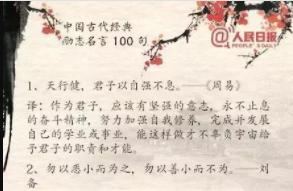 中国古代经典
励志名言100句
@人民日报
PEOPLE'S DAILY
1、天行健，君子以自强不息。——《周易》
译：作为君子，应该有坚强的意志，永不止息
的奋斗精神，努力加强自我修养，完成并发展
自己的学业或事业，能这样做才不辜负宇宙给
予君子的职责和才能。
2、勿以恶小而为之，勿以善小而不为。——刘
备